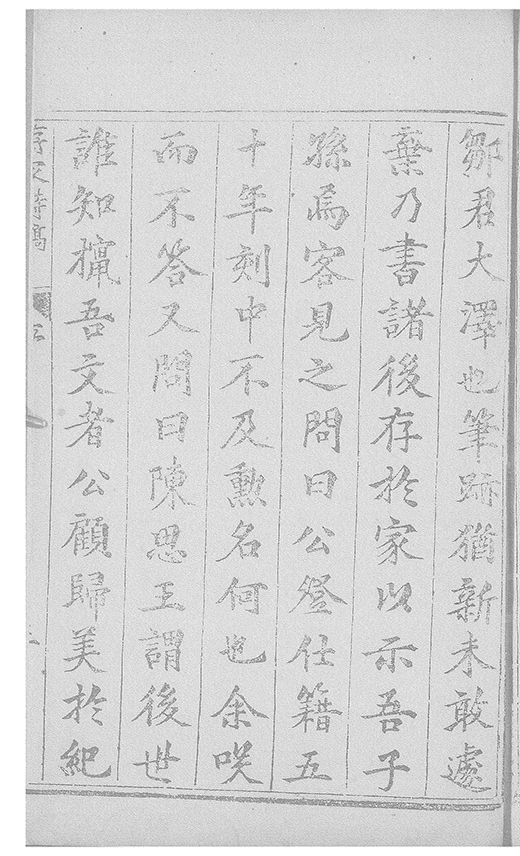 鄒君大澤也筆跡猶新未敢遽
棄乃書諸後存於家以示吾子
孫焉客見之問曰公登仕籍五
十年刻中不及勲名何也余咲
而不答又問曰陳思王謂後世
誰知㨽吾文者公顧歸美於紀